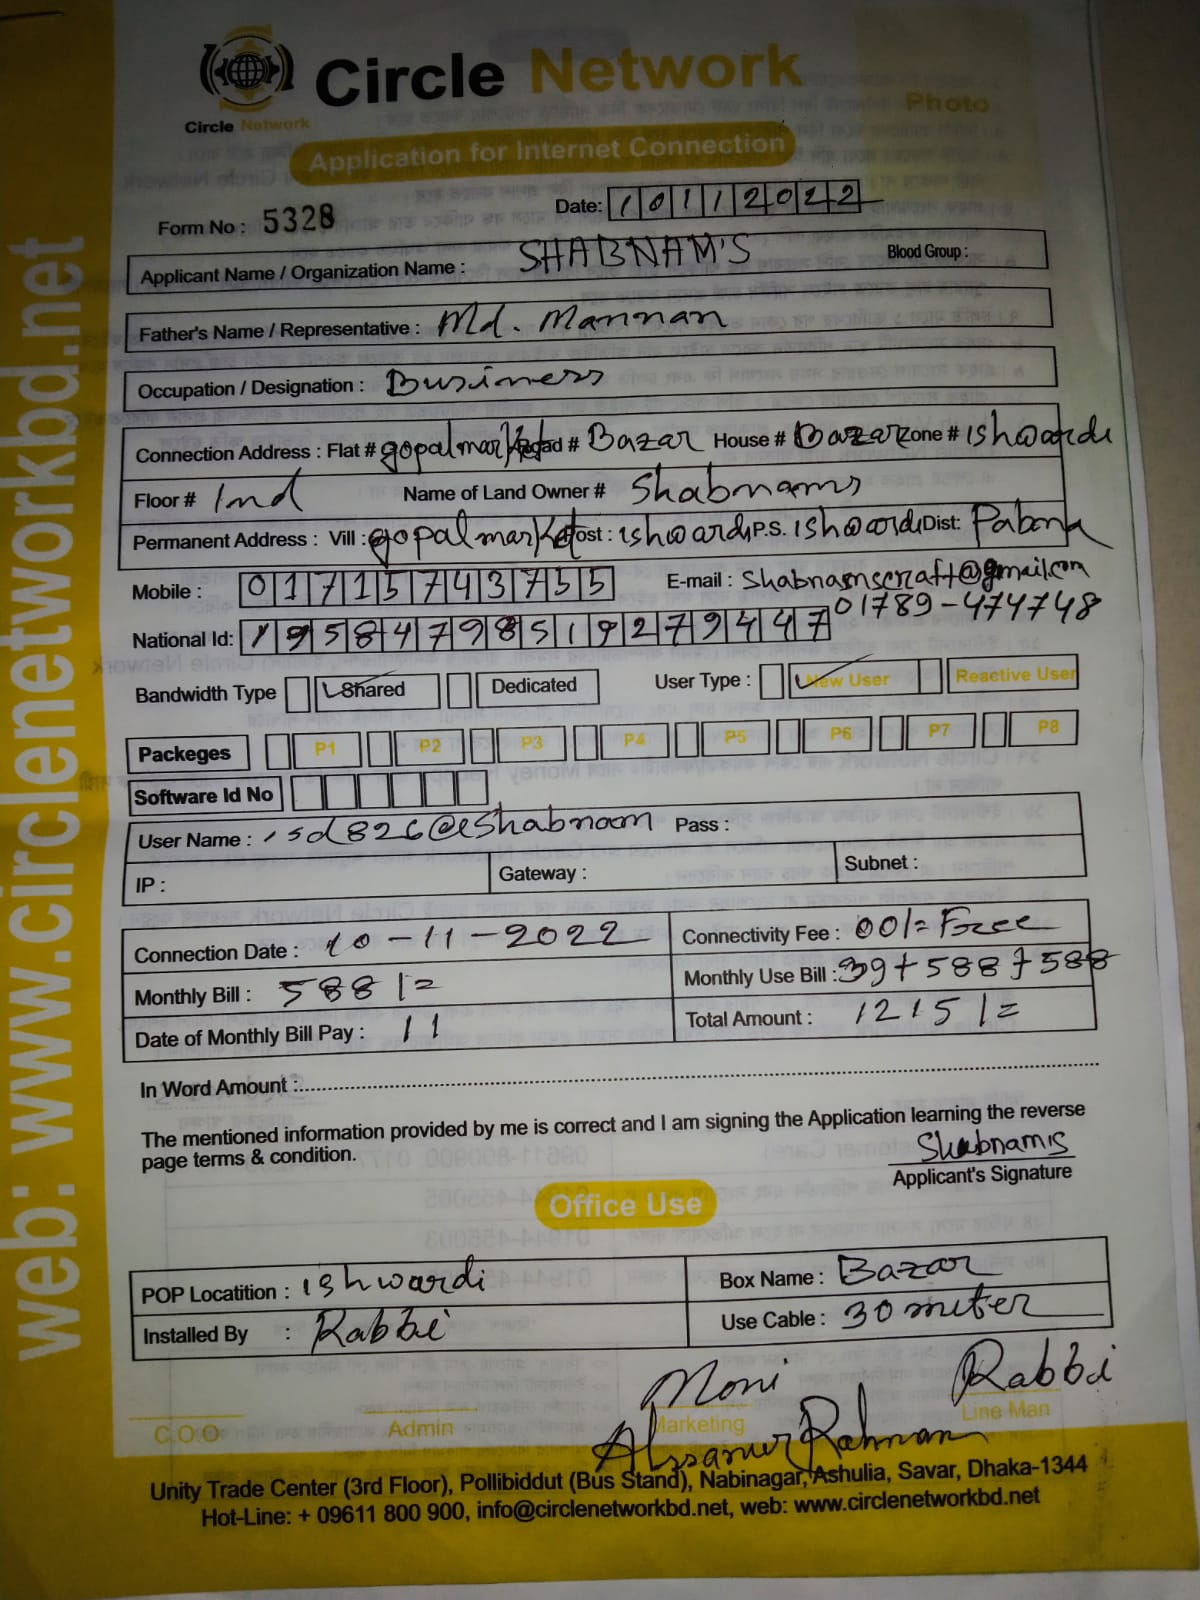 Circle Network
Circle Network
Photo
Application for Internet Connection
Form No : 5328
Date: 10112022
Applicant Name / Organization Name : SHABNAM'S Blood Group :
Father's Name / Representative : Md. Mannan
Occupation / Designation : Business
Connection Address : Flat # gopalmarket Road # Bazar House # Bazar Zone # ishwardi
Floor # Ind Name of Land Owner # Shabnams
Permanent Address : Vill : gopalmarket Post : ishwardi P.S. ishwardi Dist: Pabna
Mobile : 01715743755 E-mail : shabnamscraft@gmail.com
01789-474748
National Id: 19584798519279447
Bandwidth Type Shared Dedicated User Type : New User Reactive User
Packeges P1 P2 P3 P4 P5 P6 P7 P8
Software Id No
User Name : isd826@eShabnam Pass :
IP : Gateway : Subnet :
Connection Date : 10-11-2022 Connectivity Fee : 00/= Free
Monthly Bill : 588/= Monthly Use Bill : 39+588+588
Date of Monthly Bill Pay : 11 Total Amount : 1215/=
In Word Amount :
The mentioned information provided by me is correct and I am signing the Application learning the reverse
page terms & condition.
Shabnams
Applicant's Signature
Office Use
POP Locatition : ishwardi Box Name : Bazar
Installed By : Rabbi Use Cable : 30 meter
Moni Rabbi
C.O.O Admin Marketing Line Man
Rahman
Unity Trade Center (3rd Floor), Pollibiddut (Bus Stand), Nabinagar, Ashulia, Savar, Dhaka-1344
Hot-Line: + 09611 800 900, info@circlenetworkbd.net, web: www.circlenetworkbd.net
web: www.circlenetworkbd.net